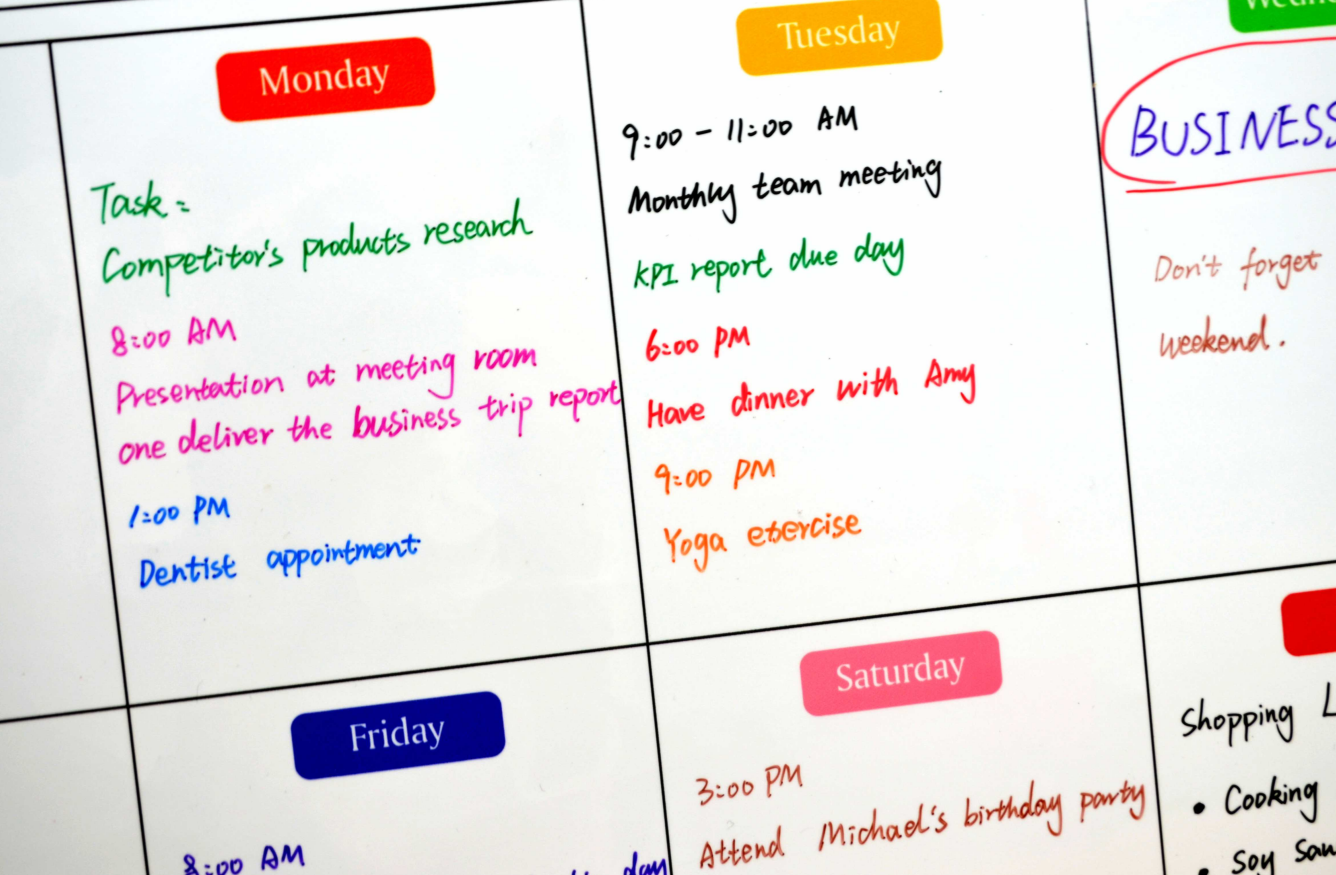 Monday
Task:
Competitor's products research
8:00 AM
Presentation at meeting room
one deliver the business trip report
1:00 PM
Dentist appointment
Tuesday
9:00 - 11:00 AM
Monthly team meeting
KPI report due day
6:00 PM
Have dinner with Amy
9:00 PM
Yoga exercise
BUSINESS
Don't forget
weekend.
Friday
8:00 AM
day
Saturday
3:00 PM
Attend Michael's birthday party
Shopping
• Cooking
• Soy